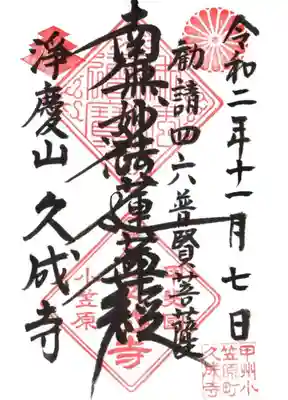 令和二年十一月七日
勧請四六普賢菩薩
南無妙法蓮華経
淨慶山 久成寺
小笠原
甲州小
笠原町
久成寺